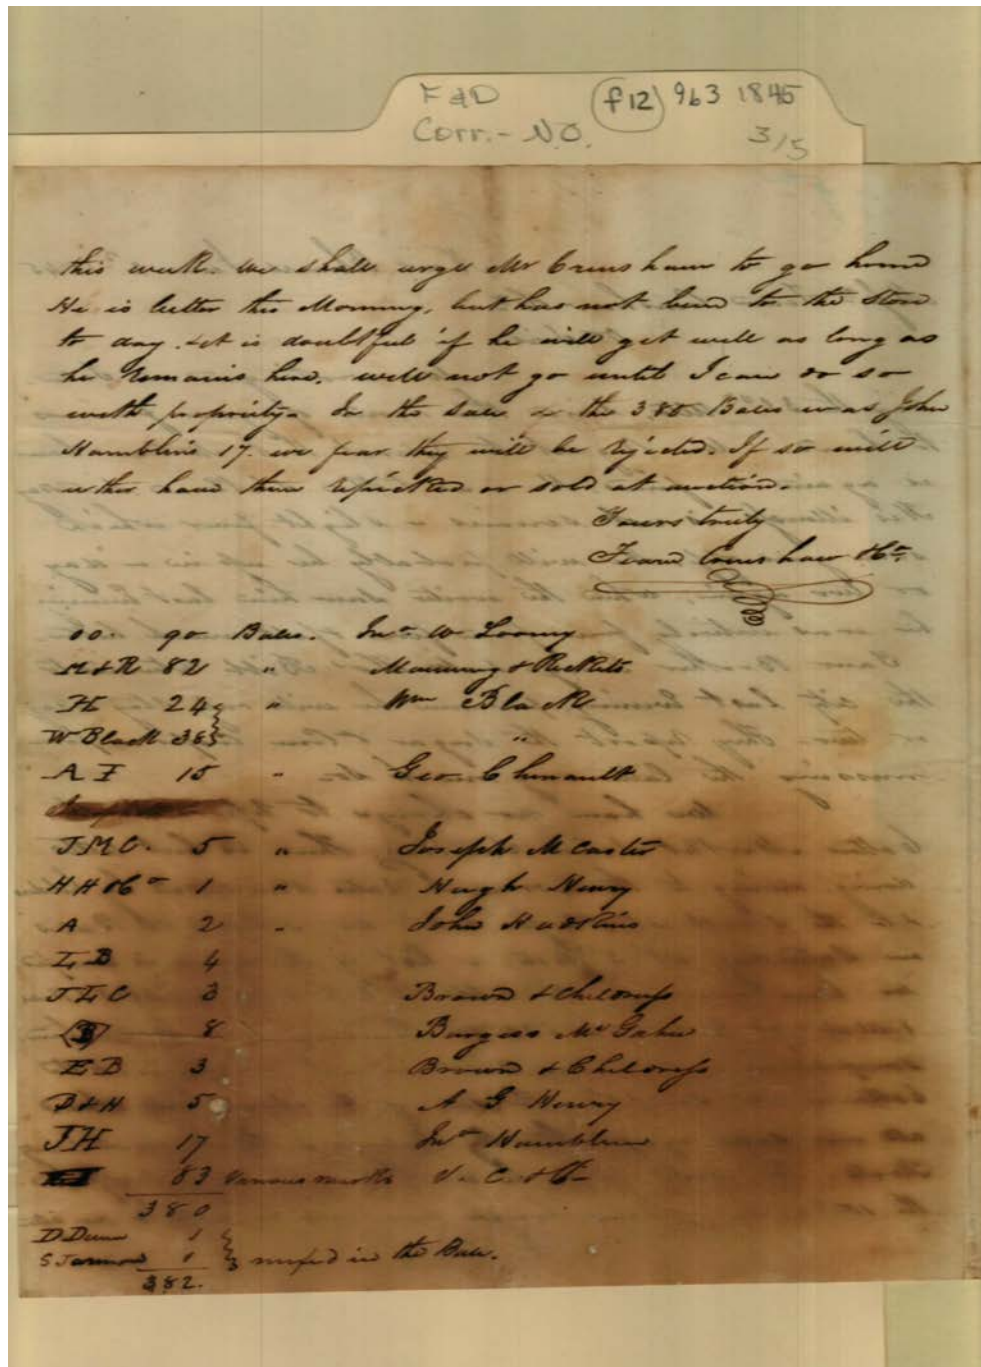 F & D
Corr. - N.O.
f12 963 1845
3/5
this week. we shall urge Mr Crenshaw to go home
He is better this Morning, but has not been to the Store
to day. & it is doubtful if he will get well as long as
he Remains here. will not go until I can do so
with propriety. In the sale of the 380 Bales was John
Hamblins 17. we fear they will be rejected. If so will
either have them repicked or sold at auction.
Yours truly
Crenshaw & Co
90 Bales. Jno W Looney
M & R 82 " Manning & Ricketts
H 24 " Wm Black
W Black 38 "
A I 15 " Geo Chenault
J M C. 5 " Joseph McCaster
H H & Co 1 " Hugh Henry
A 2 " John Hudkins
L B 4
J L C 3 Brown & Childress
B 8 Burgess
E B 3 Brown & Childress
B & H 5 A G Henry
J H 17 Jno Hamblin
83 Various marks & Co
380
D. Dunn 1
S 1 in the Bale.
382.